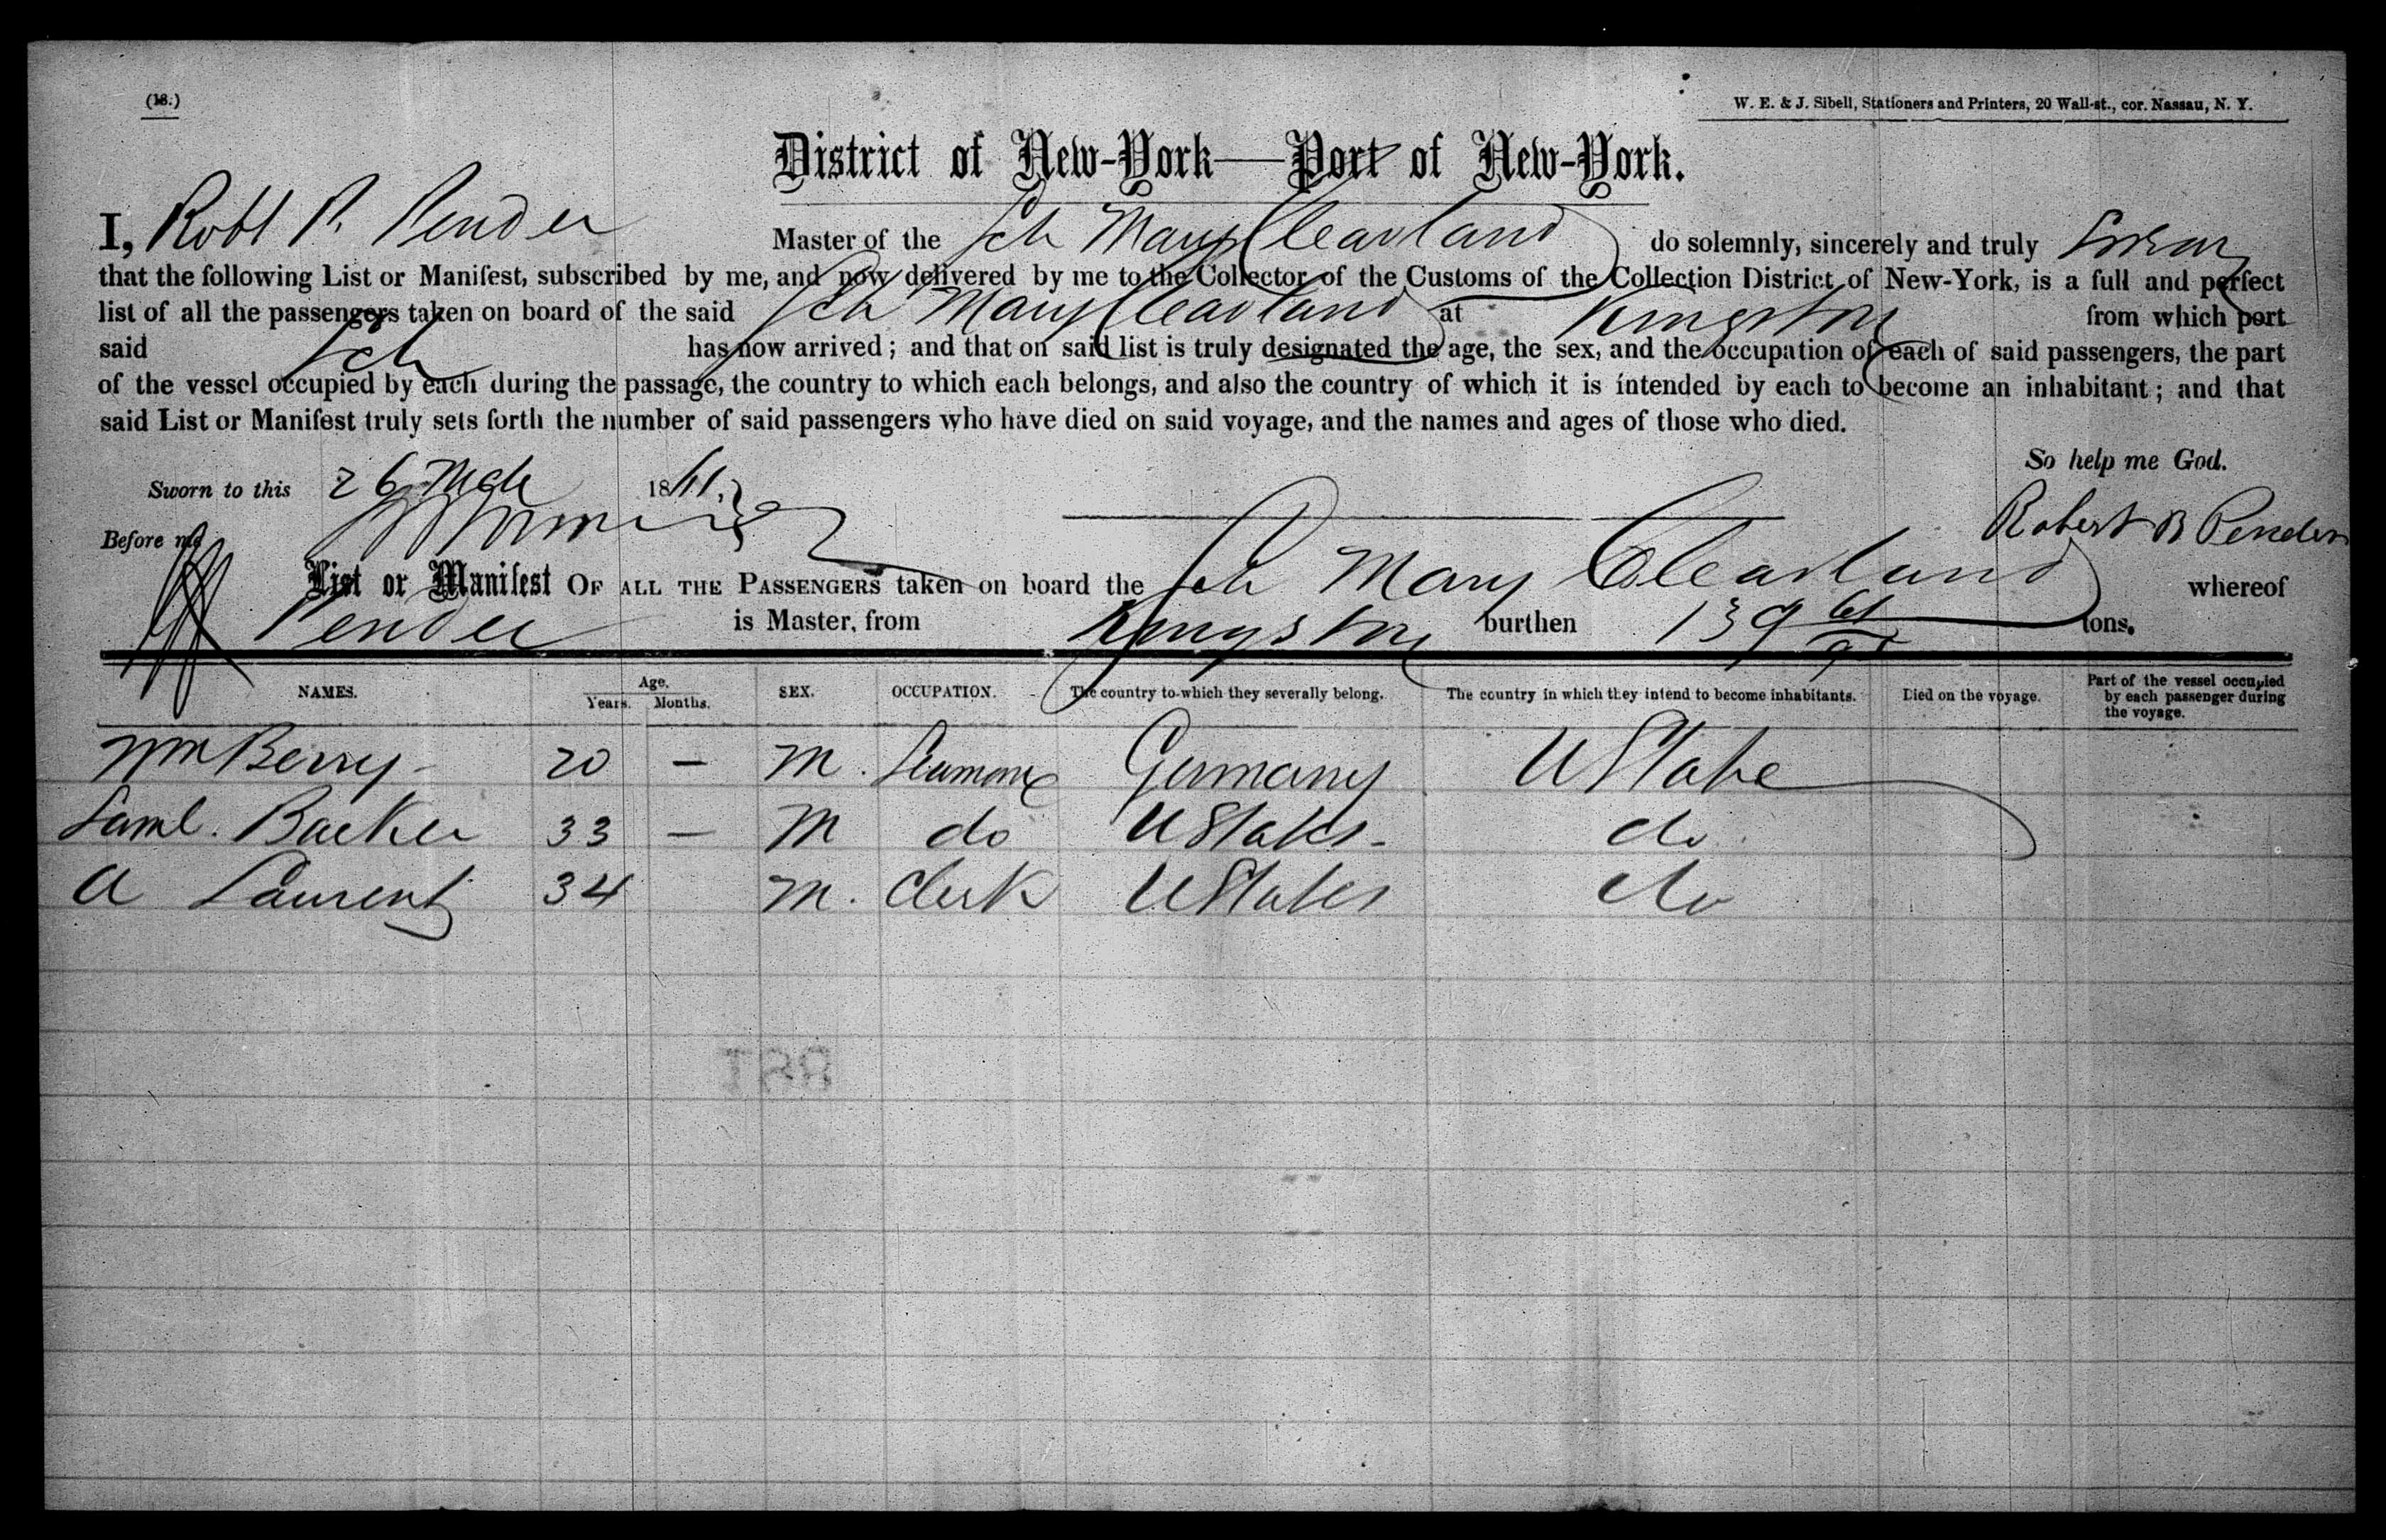 (18.)
W. E. & J. Sibell, Stationers and Printers, 20 Wall-st., cor. Nassau, N. Y.
District of New-York—Port of New-York.
I, Robt P. Pender Master of the Sch Mary Cleavland do solemnly, sincerely and truly Swear
that the following List or Manifest, subscribed by me, and now delivered by me to the Collector of the Customs of the Collection District of New-York, is a full and perfect
list of all the passengers taken on board of the said Sch Mary Cleavland at Kingston from which port
said Sch has now arrived; and that on said list is truly designated the age, the sex, and the occupation of each of said passengers, the part
of the vessel occupied by each during the passage, the country to which each belongs, and also the country of which it is intended by each to become an inhabitant; and that
said List or Manifest truly sets forth the number of said passengers who have died on said voyage, and the names and ages of those who died.
So help me God.
Sworn to this 26 Mch 1861.
Robert B Pender
Before me
List or Manifest OF ALL THE PASSENGERS taken on board the Sch Mary Cleavland whereof
Pender is Master, from Kingston burthen 139 61/95 tons.
NAMES. Age. Years. Months. SEX. OCCUPATION. The country to which they severally belong. The country in which they intend to become inhabitants. Died on the voyage. Part of the vessel occupied by each passenger during the voyage.
Wm Berry - 20 — M. Seaman Germany U State
Saml. Backer 33 — M do U States - do
A Laurent 34 M. Clerk U States do